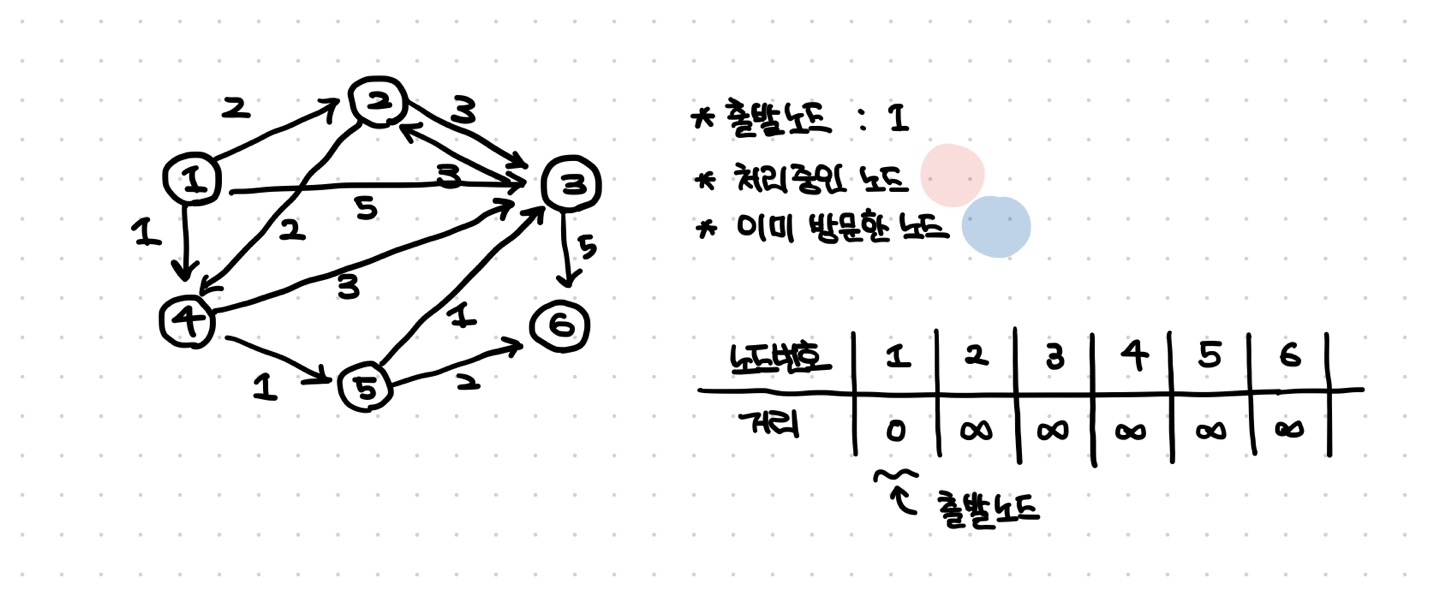 2
2
3
1
3
3
5
1
2
5
4
3
1
6
1
5
2
* 출발노드 : 1
* 처리중인 노드
* 이미 방문한 노드
노드번호 1 2 3 4 5 6
거리 0 ∞ ∞ ∞ ∞ ∞
출발노드